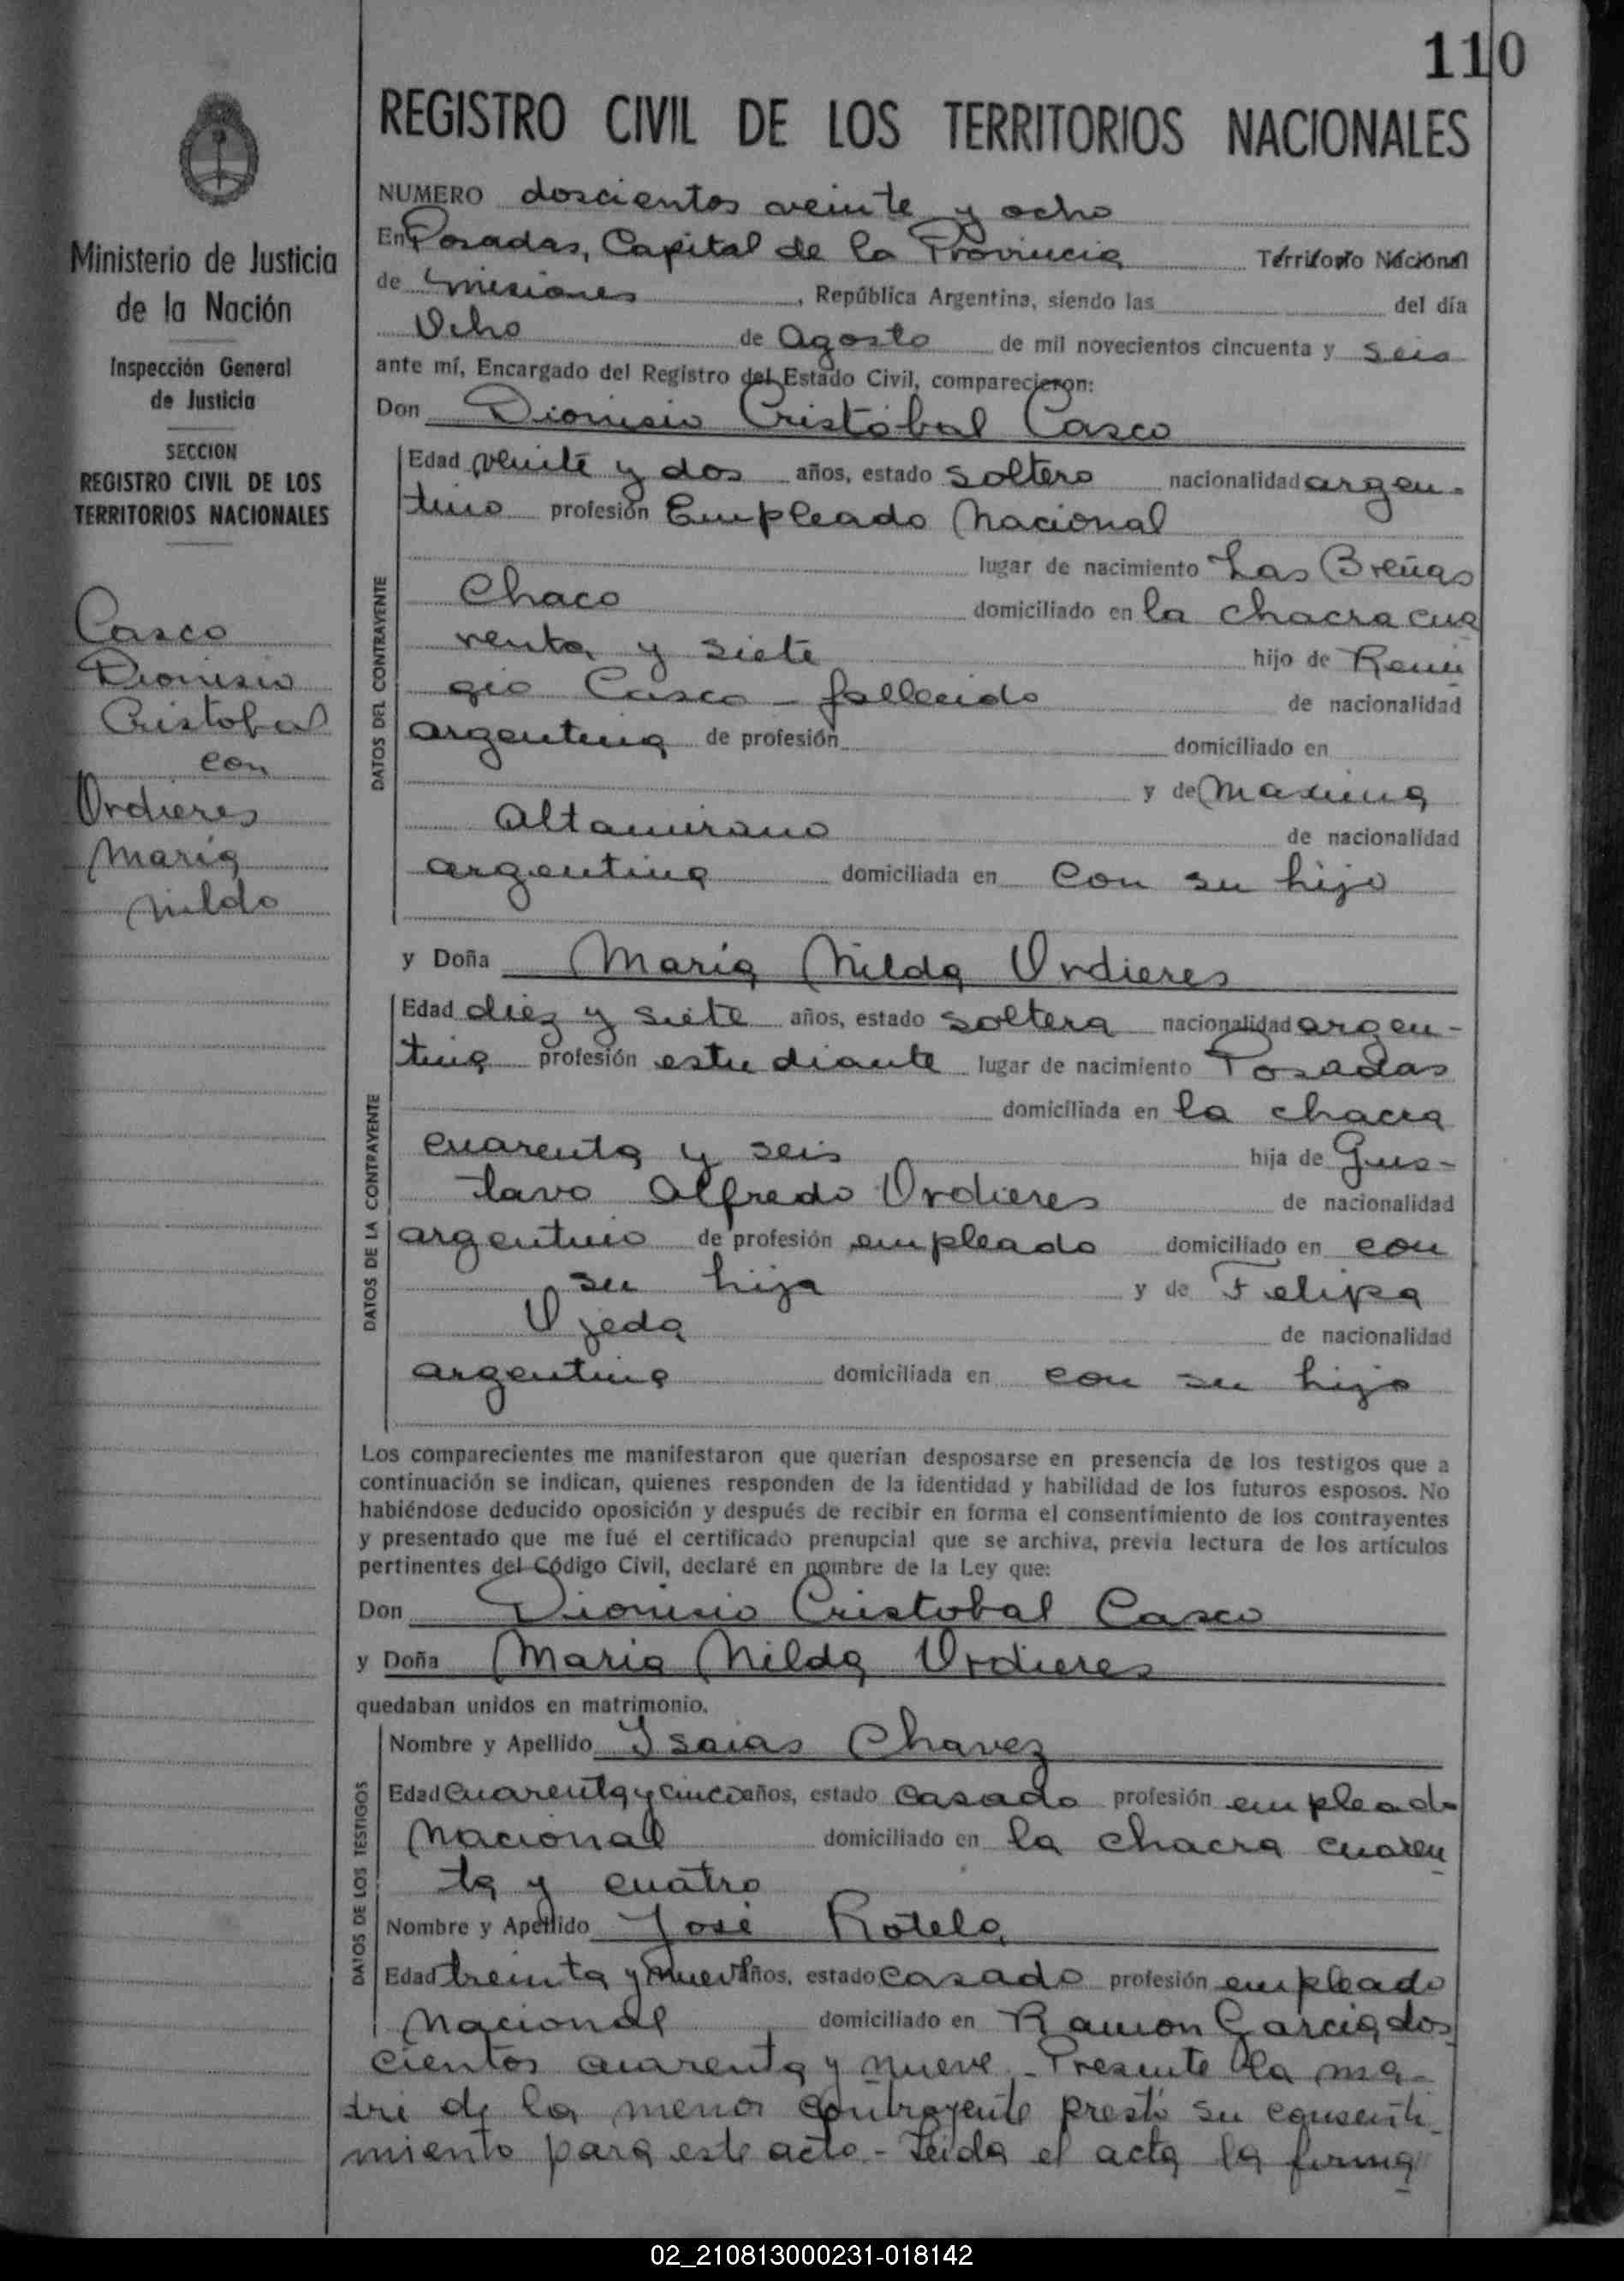 110
REGISTRO CIVIL DE LOS TERRITORIOS NACIONALES
Ministerio de Justicia
de la Nación
Inspección General
de Justicia
SECCION
REGISTRO CIVIL DE LOS
TERRITORIOS NACIONALES
Casco
Dionisio
Cristobal
con
Ordieres
Maria
Nilda
NUMERO doscientos veinte y ocho
En Posadas, Capital de la Provincia Territorio Nacional
de Misiones, República Argentina, siendo las del día
Ocho de Agosto de mil novecientos cincuenta y seis
ante mí, Encargado del Registro del Estado Civil, comparecieron:
Don Dionisio Cristóbal Casco
DATOS DEL CONTRAYENTE
Edad veinte y dos años, estado soltero nacionalidad argen-
tino profesión Empleado Nacional
lugar de nacimiento Las Breñas
Chaco domiciliado en la chacra cua
renta y siete hijo de Remi
gio Casco - fallecido de nacionalidad
argentina de profesión domiciliado en
y de Maxima
Altamirano de nacionalidad
argentina domiciliada en con su hijo
y Doña Maria Nilda Ordieres
DATOS DE LA CONTRAYENTE
Edad diez y siete años, estado soltera nacionalidad argen-
tina profesión estudiante lugar de nacimiento Posadas
domiciliada en la chacra
cuarenta y seis hija de Gus-
tavo Alfredo Ordieres de nacionalidad
argentino de profesión empleado domiciliado en con
su hija y de Felipa
Ojeda de nacionalidad
argentina domiciliada en con su hija
Los comparecientes me manifestaron que querían desposarse en presencia de los testigos que a
continuación se indican, quienes responden de la identidad y habilidad de los futuros esposos. No
habiéndose deducido oposición y después de recibir en forma el consentimiento de los contrayentes
y presentado que me fué el certificado prenupcial que se archiva, previa lectura de los artículos
pertinentes del Código Civil, declaré en nombre de la Ley que:
Don Dionisio Cristobal Casco
y Doña Maria Nilda Ordieres
quedaban unidos en matrimonio.
DATOS DE LOS TESTIGOS
Nombre y Apellido Isaias Chavez
Edad cuarenta y cinco años, estado casado profesión empleado
Nacional domiciliado en la chacra cuaren
ta y cuatro
Nombre y Apellido José Rotela
Edad treinta y nueve años, estado casado profesión empleado
Nacional domiciliado en Ramon Garcia dos
cientos cuarenta y nueve - Presente la ma-
dre de la menor contrayente prestó su consenti
miento para este acto - Leida el acta la firma
02_210813000231-018142